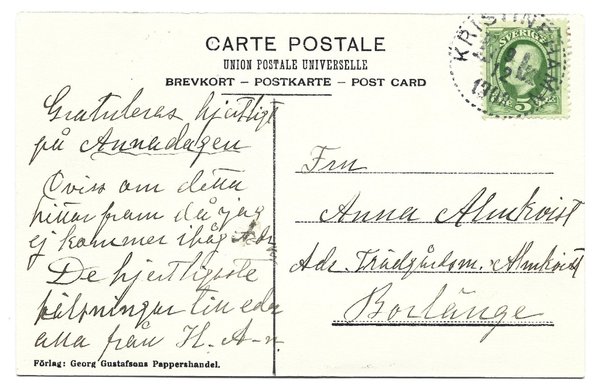 CARTE POSTALE
UNION POSTALE UNIVERSELLE
BREVKORT – POSTKARTE – POST CARD
KRISTINEHAMN
SVERIGE
5
Gratuleras hjertligt
på Annadagen
Oviss om detta
hittar fram då jag
ej kommer ihåg Adr
De hjertligaste
hälsningar till eder
alla från H. A-n
Frn
Anna Almkvist
Adr. Trädgårdsm. Almkvist
Borlänge
Förlag: Georg Gustafsons Pappershandel.